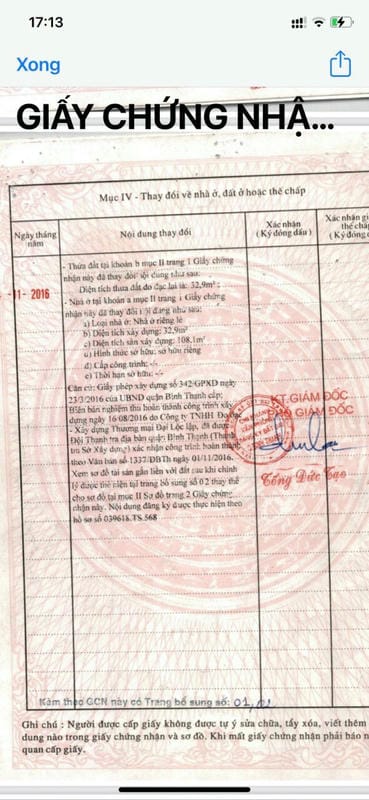 17:13
Xong
GIẤY CHỨNG NHẬ...
Mục IV - Thay đổi về nhà ở, đất ở hoặc thế chấp
Ngày tháng năm
Nội dung thay đổi
Xác nhận
(Ký đóng dấu)
Xác nhận
thế chấp
(Ký đóng
-11- 2016
- Thửa đất tại khoản b mục II trang 1 Giấy chứng
nhận đã thay đổi nội dung như sau:
Diện tích thửa đất đo đạc lại là: 32,9m²;
- Nhà ở tại khoản a mục II trang 1 Giấy chứng
nhận này đã thay đổi nội dung như sau:
a) Loại nhà ở: Nhà ở riêng lẻ
b) Diện tích xây dựng: 32,9m²
c) Diện tích sàn xây dựng: 108,1m²
d) Hình thức sở hữu: sở hữu riêng
đ) Cấp công trình:-.-
e) Thời hạn sở hữu:-.-
Căn cứ: Giấy phép xây dựng số 342/GPXD ngày
23/3/2016 của UBND quận Bình Thạnh cấp;
Biên bản nghiệm thu hoàn thành công trình xây
dựng ngày 16/08/2016 do Công ty TNHH
- Xây dựng Thương mại Đại Lộc lập, đã được
Đội Thanh tra địa bàn quận Bình Thạnh (Thanh
tra Sở Xây dựng) xác nhận công trình hoàn thành
theo Văn bản số 1337/ĐBTh ngày 01/11/2016.
Xem sơ đồ tài sản gắn liền với đất sau khi chỉnh
lý được thể hiện tại trang bổ sung số 02 thay thế
cho sơ đồ tại mục II Sơ đồ trang 2 Giấy chứng
nhận này. Nội dung đăng ký được thực hiện theo
hồ sơ số 039618.TS.568
KT.GIÁM ĐỐC
PHÓ GIÁM ĐỐC
Tống Đức Tạo
Kèm theo GCN này có Trang bổ sung số: 01,
Ghi chú : Người được cấp giấy không được tự ý sửa chữa, tẩy xóa, viết thêm
dung nào trong giấy chứng nhận và sơ đồ. Khi mất giấy chứng nhận phải báo
quan cấp giấy.